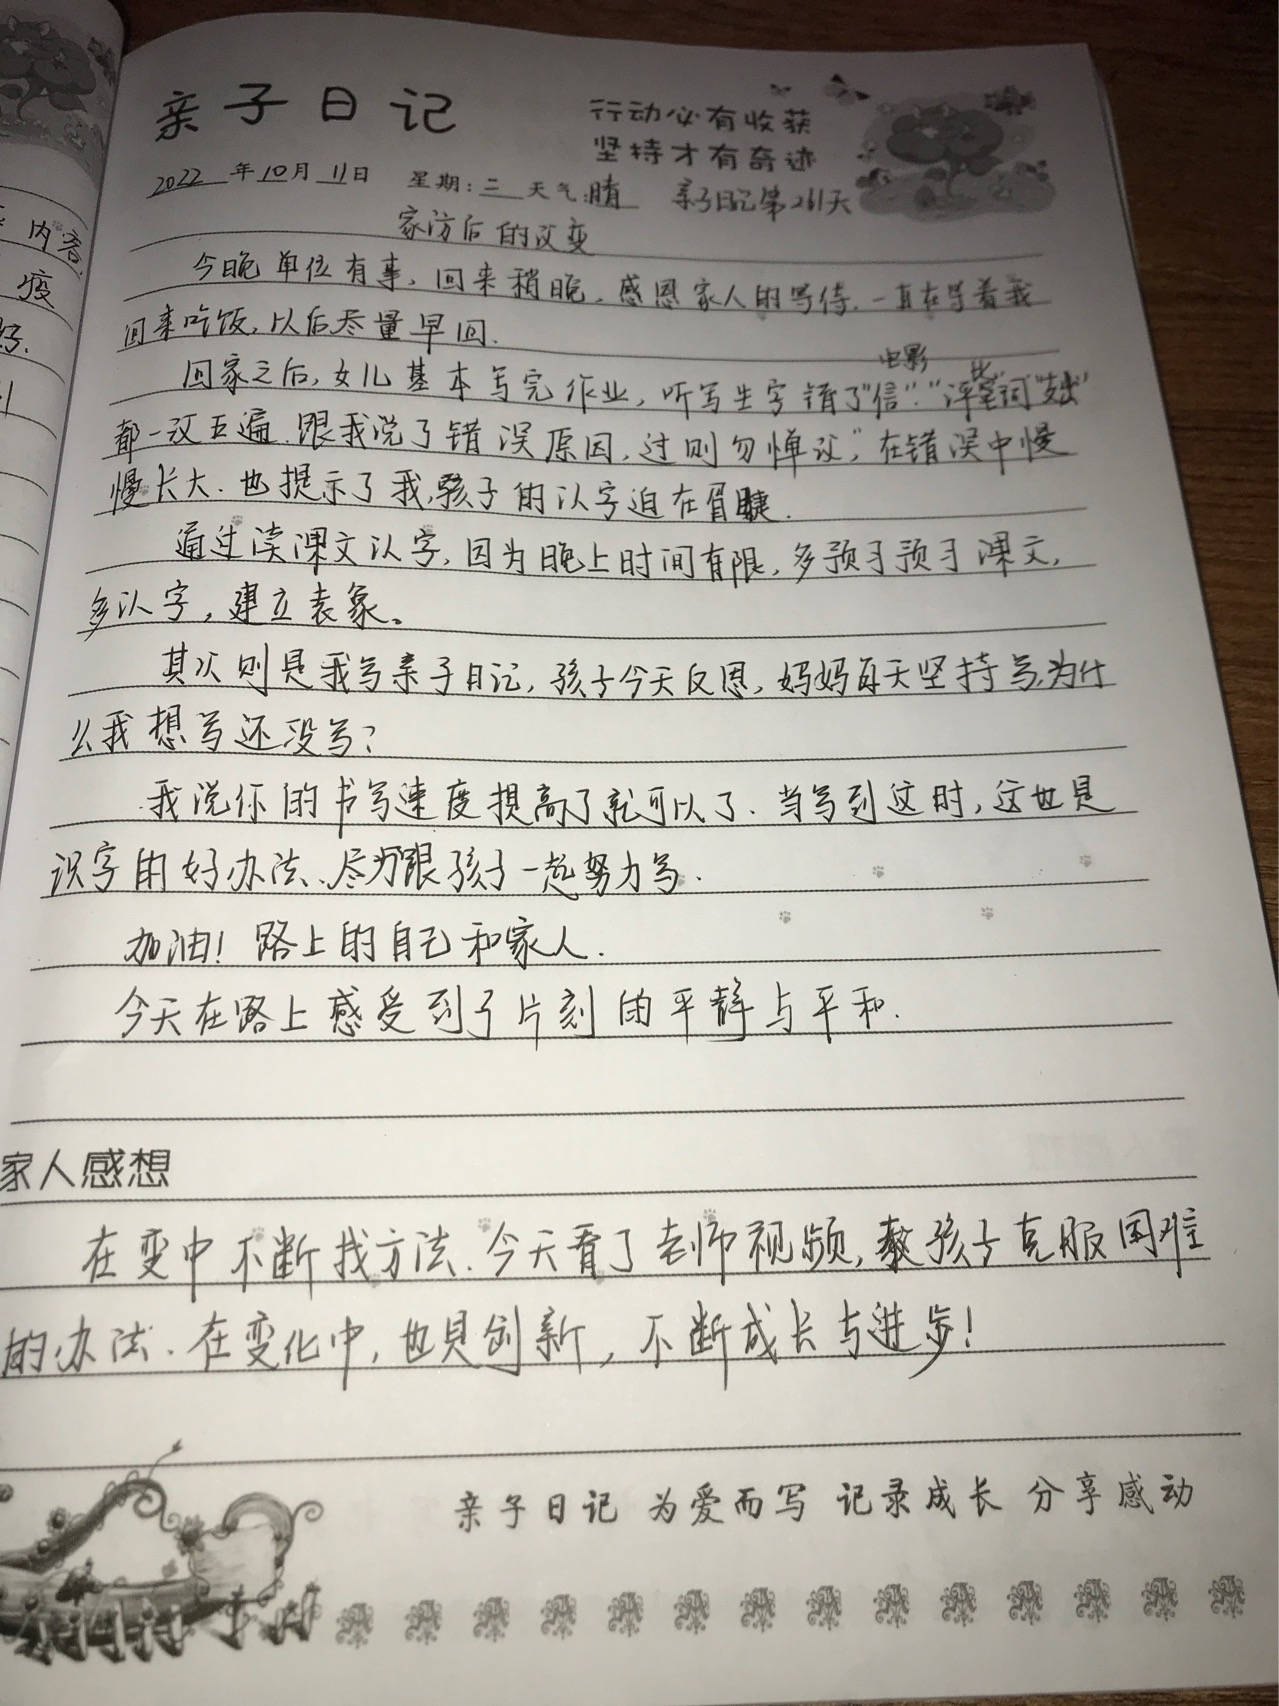 亲子日记
行动必有收获
坚持才有奇迹
2022 年 10 月 11 日 星期:三 天气:晴 亲子日记第261天
家访后的改变
今晚单位有事，回来稍晚，感恩家人的等待，一直在等着我
回来吃饭，以后尽量早回.
电影 比
回家之后，女儿基本写完作业，听写生字错了"信"."评 词"支出"
都一改五遍.跟我说了错误原因，过则勿惮改"，在错误中慢
慢长大.也提示了我，孩子的认字迫在眉睫.
通过读课文认字，因为晚上时间有限，多预习预习课文，
多认字，建立表象。
其次则是我写亲子日记，孩子今天反思，妈妈每天坚持写，为什
么我想写还没写？
我说你的书写速度提高了就可以了.当写到这时，这也是
识字的好办法、尽力跟孩子一起努力写.
加油！路上的自己和家人.
今天在路上感受到了片刻的平静与平和.
家人感想
在变中不断找方法.今天看了老师视频，教孩子克服困难
的办法.在变化中，也是创新，不断成长与进步！
亲子日记 为爱而写 记录成长 分享感动
内容.
疫
好.